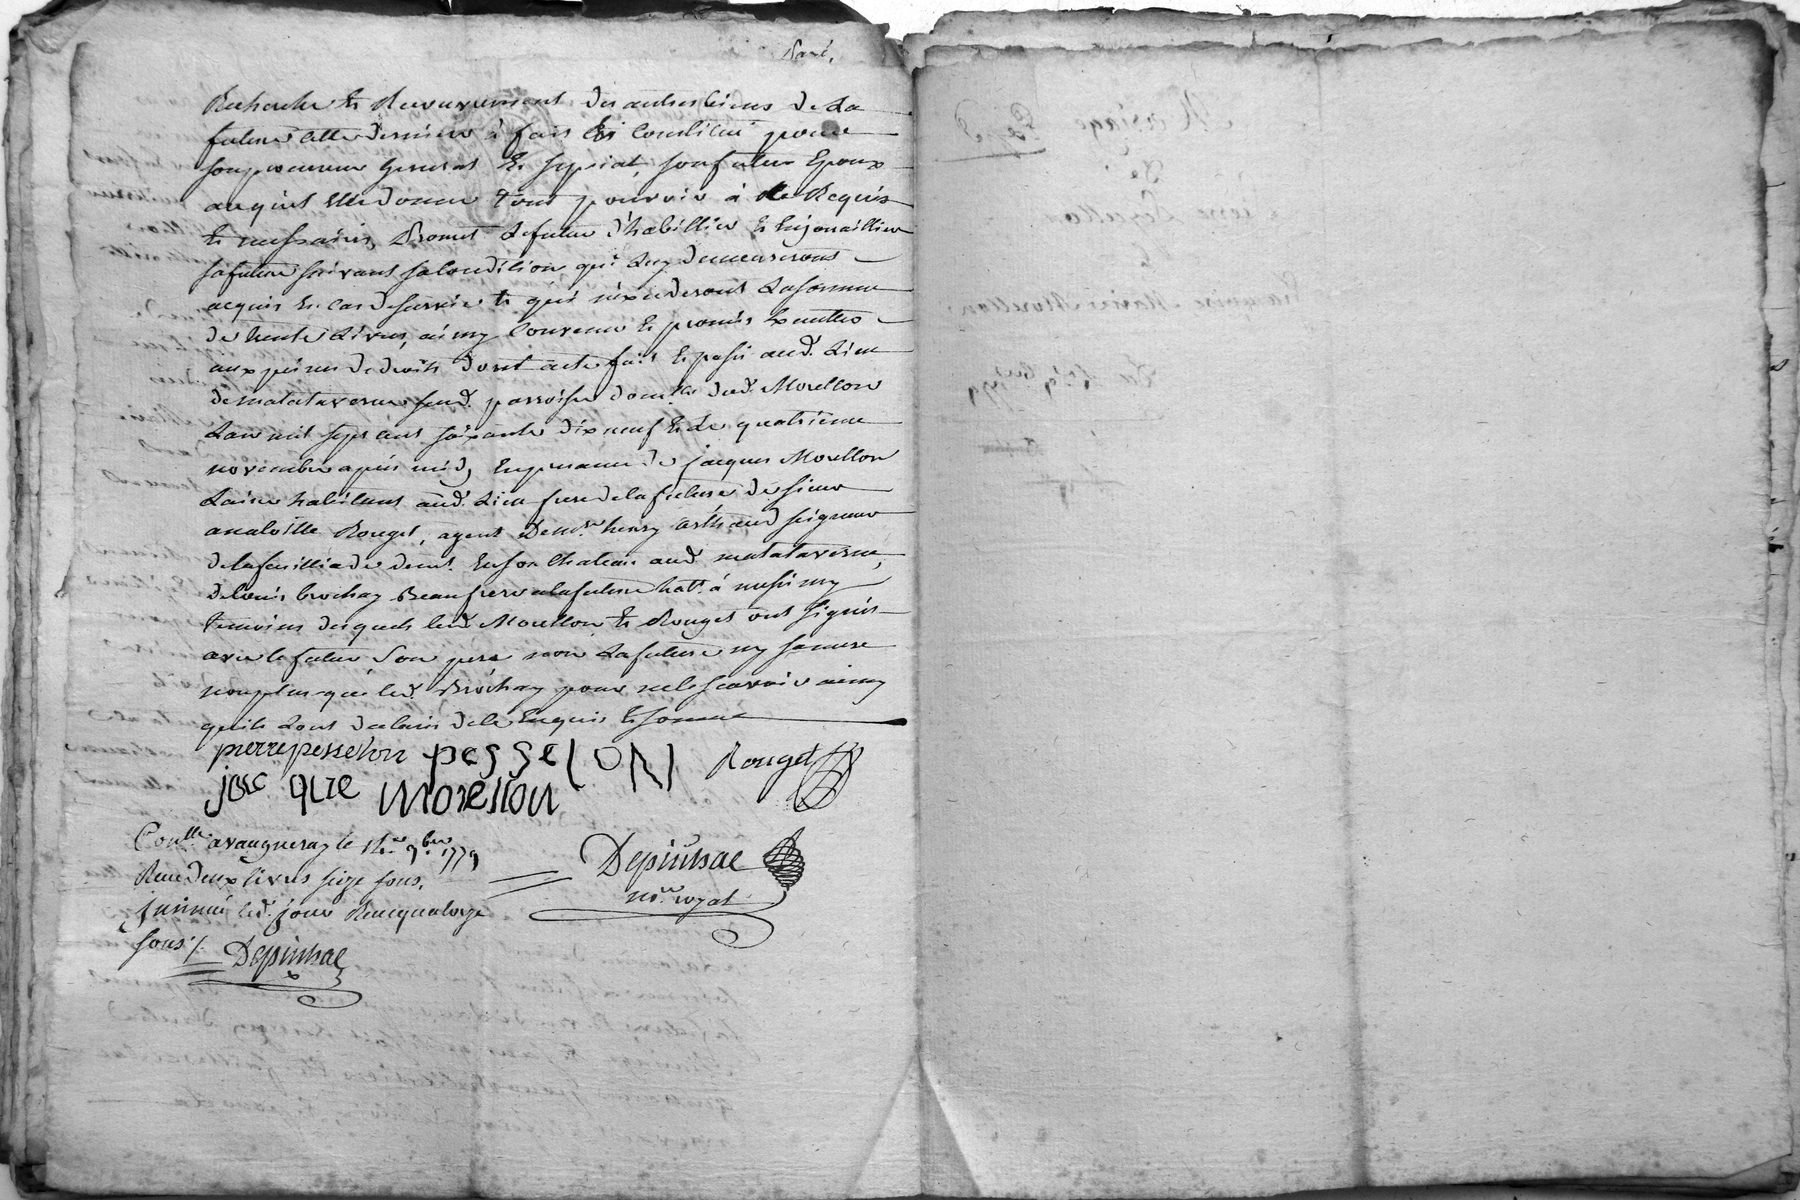 Recherche et Recouvrement des autres biens de La
future cette derniere à fait Et Constitué pour
son procureur general Et special, son futur Epoux
auquel Elle donne tout pouvoir à ce Requis
Et necessaires, Promet Le futur d'habillier Et Enjouaillier
sa future suivant sa Condition qui Luy demeureront
acquis En cas de survie Et qui n'exederont La somme
de trente Livres, ainsy Convenu Et promis
aux peines de droits dont acte fait Et passé aud. Lieu
de malataverne susd. parroisse dud. Morellon
L'an mil sept cent soixante dix neuf Et Le quatrieme
novembre après midy En presence de jacques Morellon
Laine habitant aud. Lieu frere de la future de sieur
Rouget, agent de mr. henry seigneur
de la feuilliade demt. En son Chateau aud. malataverne,
de Louis brochay Beaufrere a la future habt. à messimy
temoins desquels led. Morellon Et Rouget ont signés
avec le futur Son pere non La future ny sa mere
non plus que led. Brochay pour ne le scavoir ainsy
qu'ils L'ont declaré de ce Enquis Et sommé
pierre pesselon pesselON Rouget
jacque morellon
Conlle. a vaugneray le 14e. 9bre. 1779
Reçu deux livres seize sous,
Depiussac
nore. royal
insinué led. jour Reçu quatorze
sous ./. Depiussac
Mariage
de
pierre Pesselon
&
françoise Marie Morellon
Du 4e. 9bre. 1779